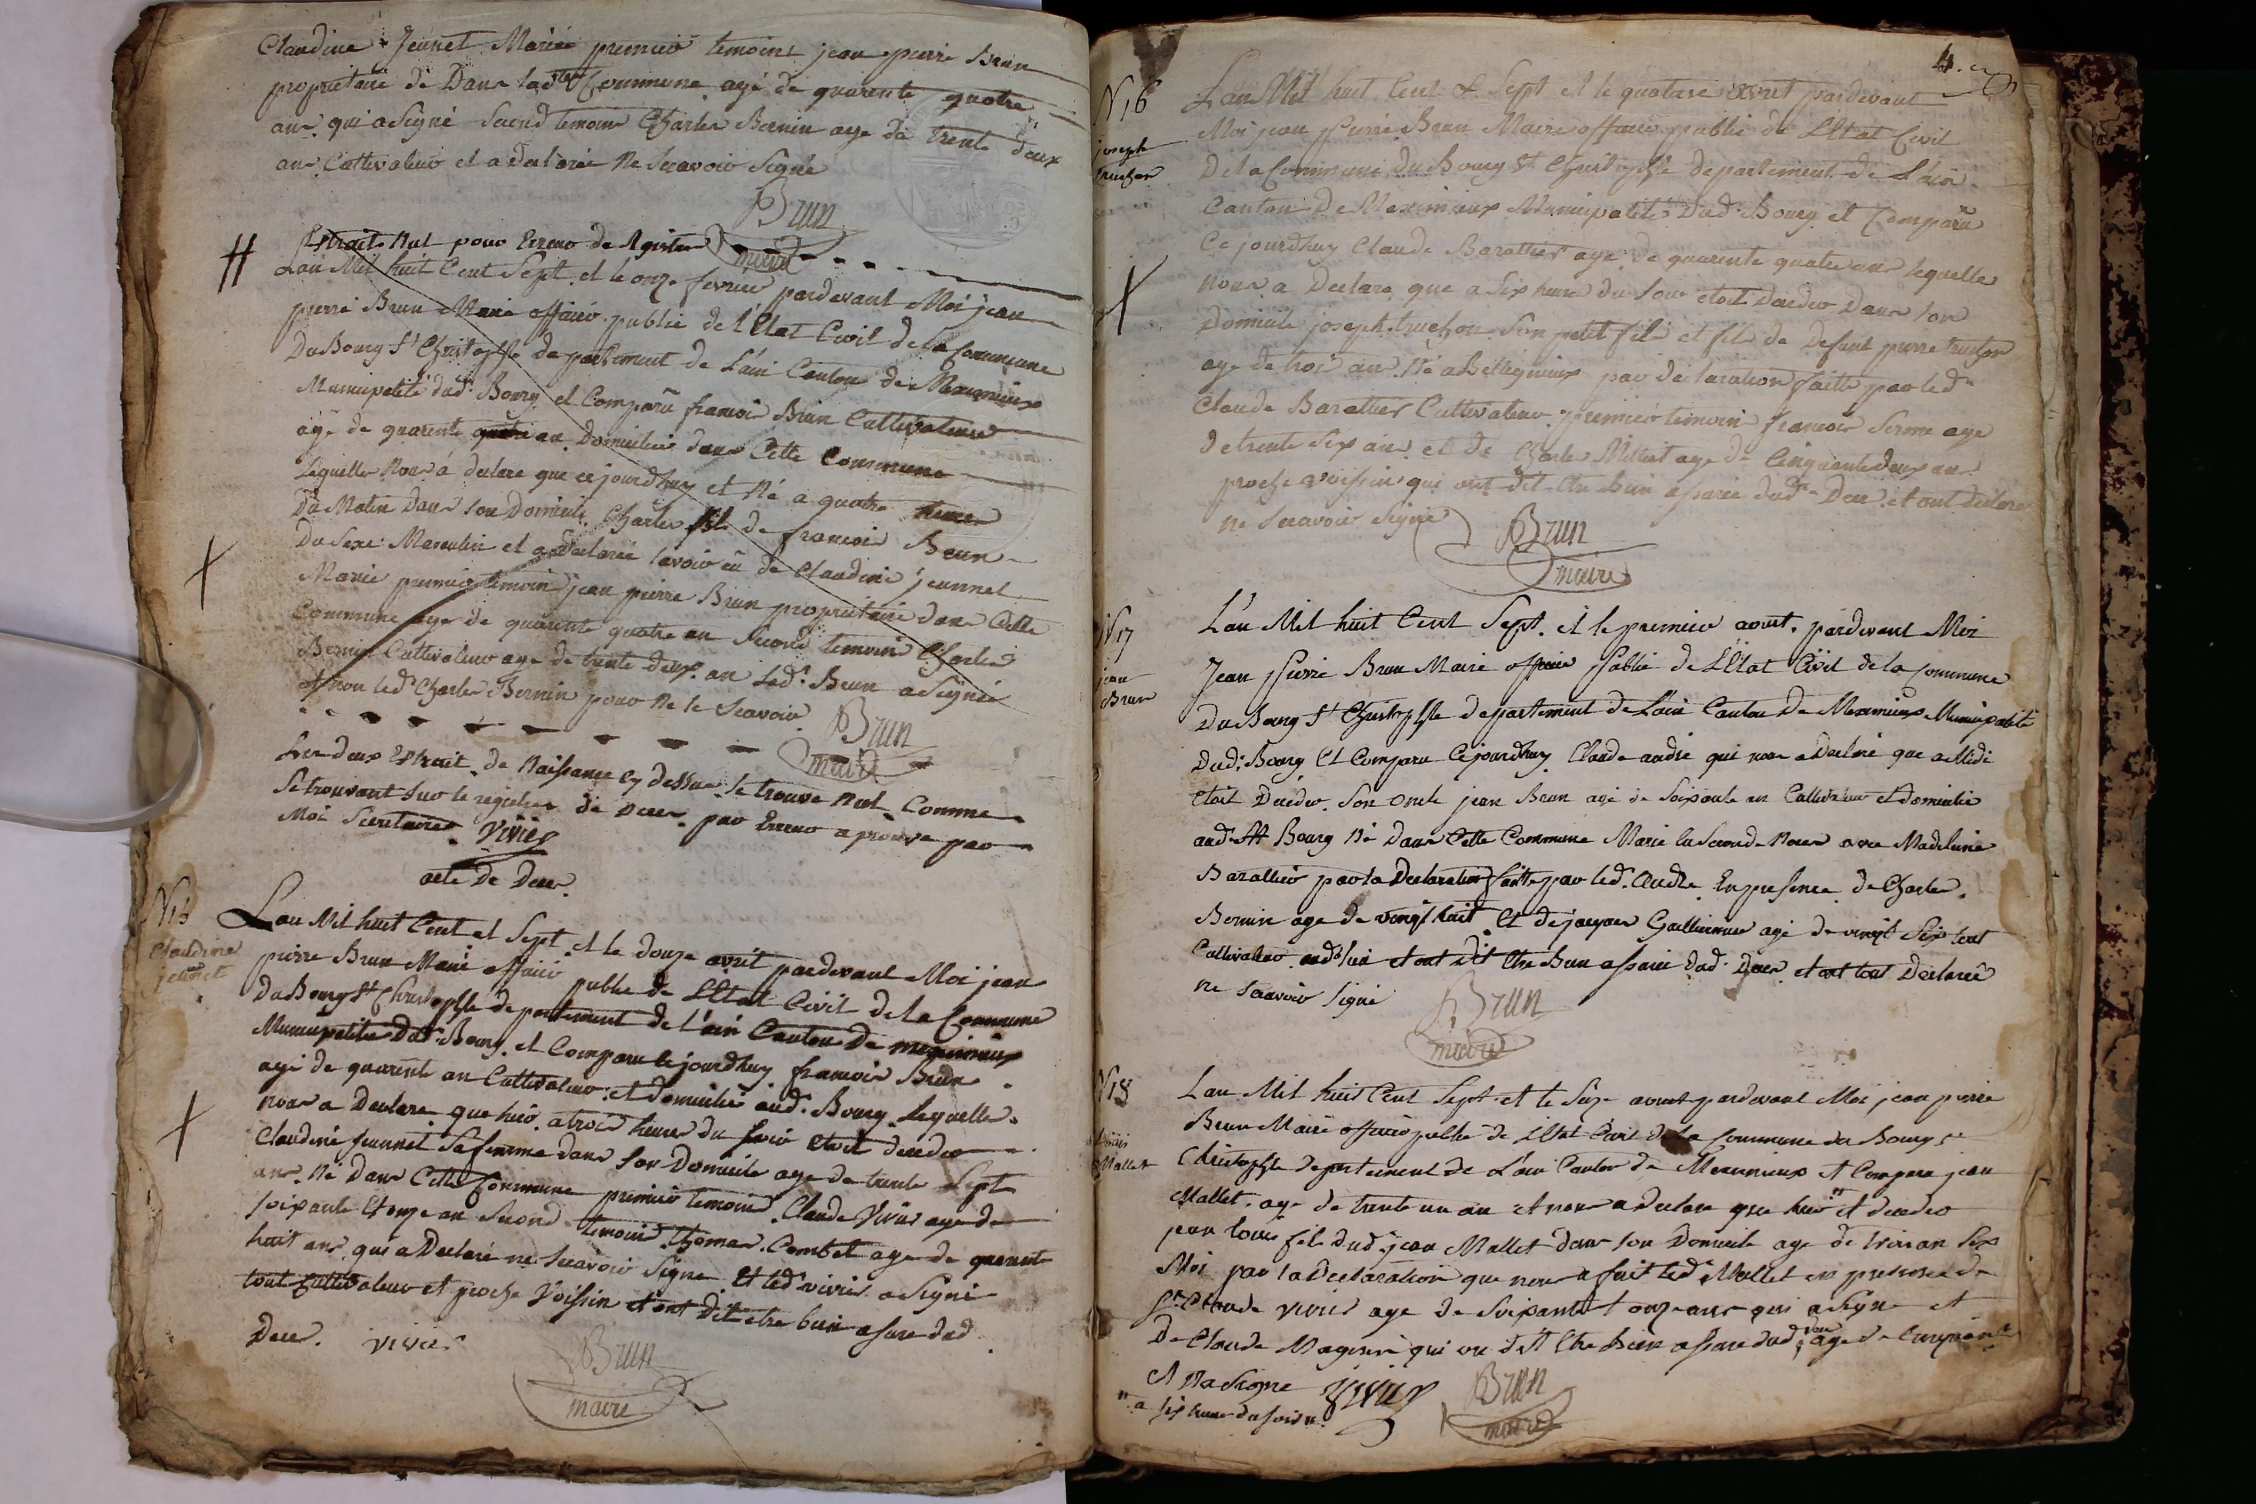 Claudine Jeunet Mariée premier temoins jean pierre Brun
proprietaire de Dans lad.te Commune agé de quarente quatre
ans qui a Signé Second temoin Charles Bernin age de trente deux
ans Cultivateur et a declarée ne Scavoir Signé
Brun
maire
Extrait Nul pour Erreur de Registre
Lan Mil huit Cent Sept et le onze fevrier pardevant Moi jean
pierre Brun Maire officier public de l'Etat Civil de la Commune
Du Bourg St Christophle departement de L'ain Canton de Meximieux
Municipalité dud. Bourg et Comparu francois Brun Cultivateur
agé de quarente an Domicilié dans Cette Commune
Lequelle Nous a declare que ce jourdhuy et Né a quatre heure
Du Matin Dans son Domicile Charles fils de francois Brun
Du Sexe Masculin et a declarée lavoir eu de Claudine jeunnet
Mariée premier temoin jean pierre Brun proprietaire dans Cette
Commune age de quarente quatre an Second temoin Charles
Bernin Cultivateur age de trente deux an Led. Brun a Signé
et non led. Charles Bernin pour Ne le Scavoir
Brun
maire
Les deux Extrait de Naissance cy dessus Se trouve Nul Comme
Se trouvant Sur le registre de Deces par Erreur aprouve par
Moi Secretaire Vivier
acte De Deces
N 15
Claudine
jeunet
Lan Mil huit Cent et Sept et le douze avrit pardevant Moi jean
pierre Brun Maire officier public de L'Etat Civil de la Commune
Du Bourg St Christophle departement de L'ain Canton De meximieux
Municipalite Dud. Bourg et Comparu le jourdhuy francois Brun
agé de quarente an Cultivateur et domicilié aud. Bourg Lequelle
nous a Declare que hier a trois heure du Soir etoit decedeo
Claudine jeunnet Sa femme dans Son Domicile age de trente Sept
ans Né Dans Cette Commune premier temoin Claude Vivier age de
soixante et onze an Second temoin Thomas Combet age de quarente
huit ans qui a Declaré ne Scavoir Signe Et led. vivier a Signé
tout Cultivateur et proche Voisin et ont Dit etre bien asure dud.
Deces. vivier
Brun
maire
4.
N 16
joseph
truchon
Lan Mil huit Cent & Sept et le quatorze avrit pardevant
Moi jean pierre Brun Maire officier public de L'Etat Civil
De la Commune du Bourg St Christophle departement de L'ain
Canton De Meximieux Municipalité Dud. Bourg et Comparu
Ce jourdhuy Claude Barattier agé de quarente quatre ans lequelle
nous a Declare que a Six heure du Soir etoit Decedeo Dans Son
Domicile joseph truchon Son petit fils et fils de Defunt pierre truchon
age de trois an Né a Bellignieux par declaration faitte par led.
Claude Barattier Cultivateur premier temoin francois Serme age
de trente Six ans et de Charles Milliet age de Cinquante deux an
proche voissin qui ont dit Etre bien assurée dud. Deces et ont declare
ne Scavoir Signé
Brun
maire
N 17
jean
Brun
L'an Mil huit Cent Sept et le premier aout pardevant Moi
Jean Pierre Brun Maire officier Public de L'Etat Civil de la Commune
Du Bourg St Christophle departement de L'ain Canton De Meximieux Municipalité
Dud. Bourg Et Comparu Cejourdhuy Claude andré qui nous a Declaré que a Midi
etoit Decedeo Son Oncle jean Brun agé de Soixante an Cultivateur et domicilié
aud. St Bourg Né dans Cette Commune Marie la Seconde Noces avec Madelaine
Barattier par la Declaration faitte par led. andre En presence de Charles
Bernin age de vingt huit Et de jacques Guillermier agé de vingt Six tout
Cultivateur aud. lieu et ont dit Etre Bien assuré dud. Deces et ont tout Declarée
ne Scavoir Signé
Brun
maire
N 18
Louis
Mallet
Lan Mil huit Cent Sept et le Seze aoust pardevant Moi jean pierre
Brun Maire officier public de L'Etat Civil de la Commune du Bourg St
Christophle departement de L'ain Canton de Meximieux et Compara jean
Mallet age de trente un an et nous a declare que hier " et decedeo
jean Louis fils dud. jean Mallet dans son Domicile age de trois an Six
Moi par la Declaration que nous a fait led. Mallet en presence de
Sr. Claude Vivier age de Soixante et onze ans qui a Signe et
De Claude Magnin qui on dit Etre bien assure dud. Deces age de Cinquante
et Na Signe Vivier
Brun
maire
" a Six heure du Soir "